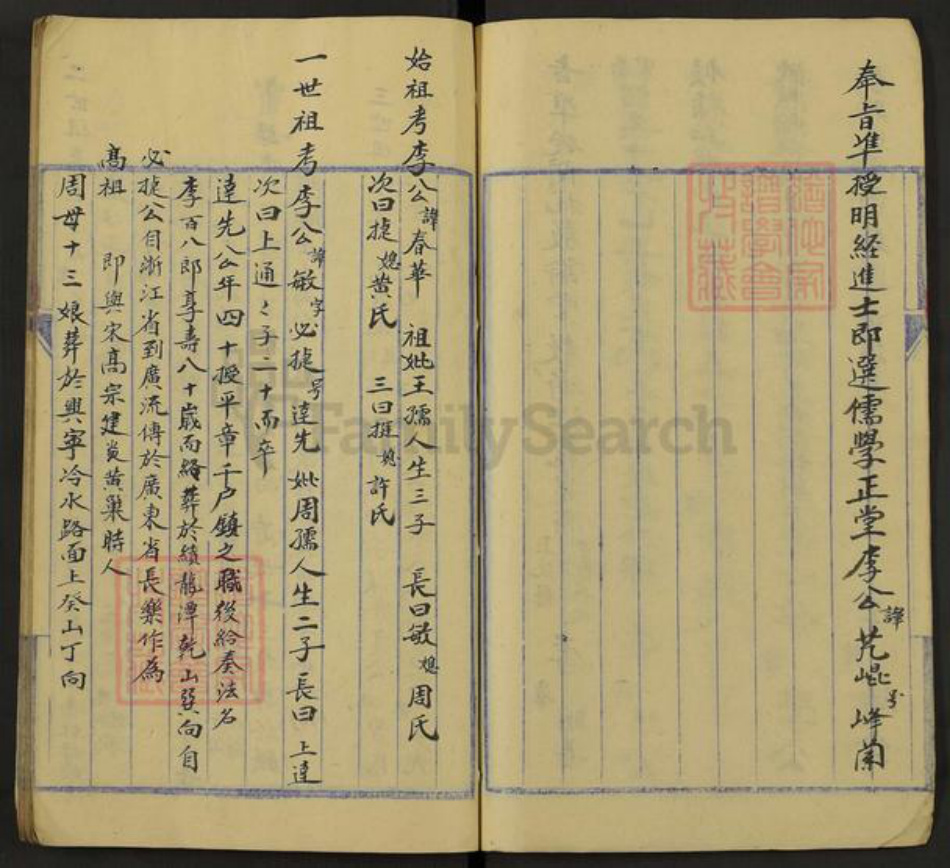 奉旨准授明経進士即選儒學正堂李公諱芃崐号峰蘭
始祖考李公諱春華 祖妣王孺人生三子 長曰敏媳周氏
次曰捷媳黄氏 三曰挺媳許氏
一世祖考李公諱敏字必捷号達先妣周孺人生二子長曰上達
次曰上通〻子二十而卒
達先公年四十授平章千户鎮之職後給奏法名
李百八郎享壽八十歲而終葬於績龍潭乾山巽向自
必捷公自淅江省到廣流傳於廣東省長樂作為
髙祖 即與宋髙宗建炎黄巢時人
周母十三娘葬於興寧冷水路面上癸山丁向
FamilySearch